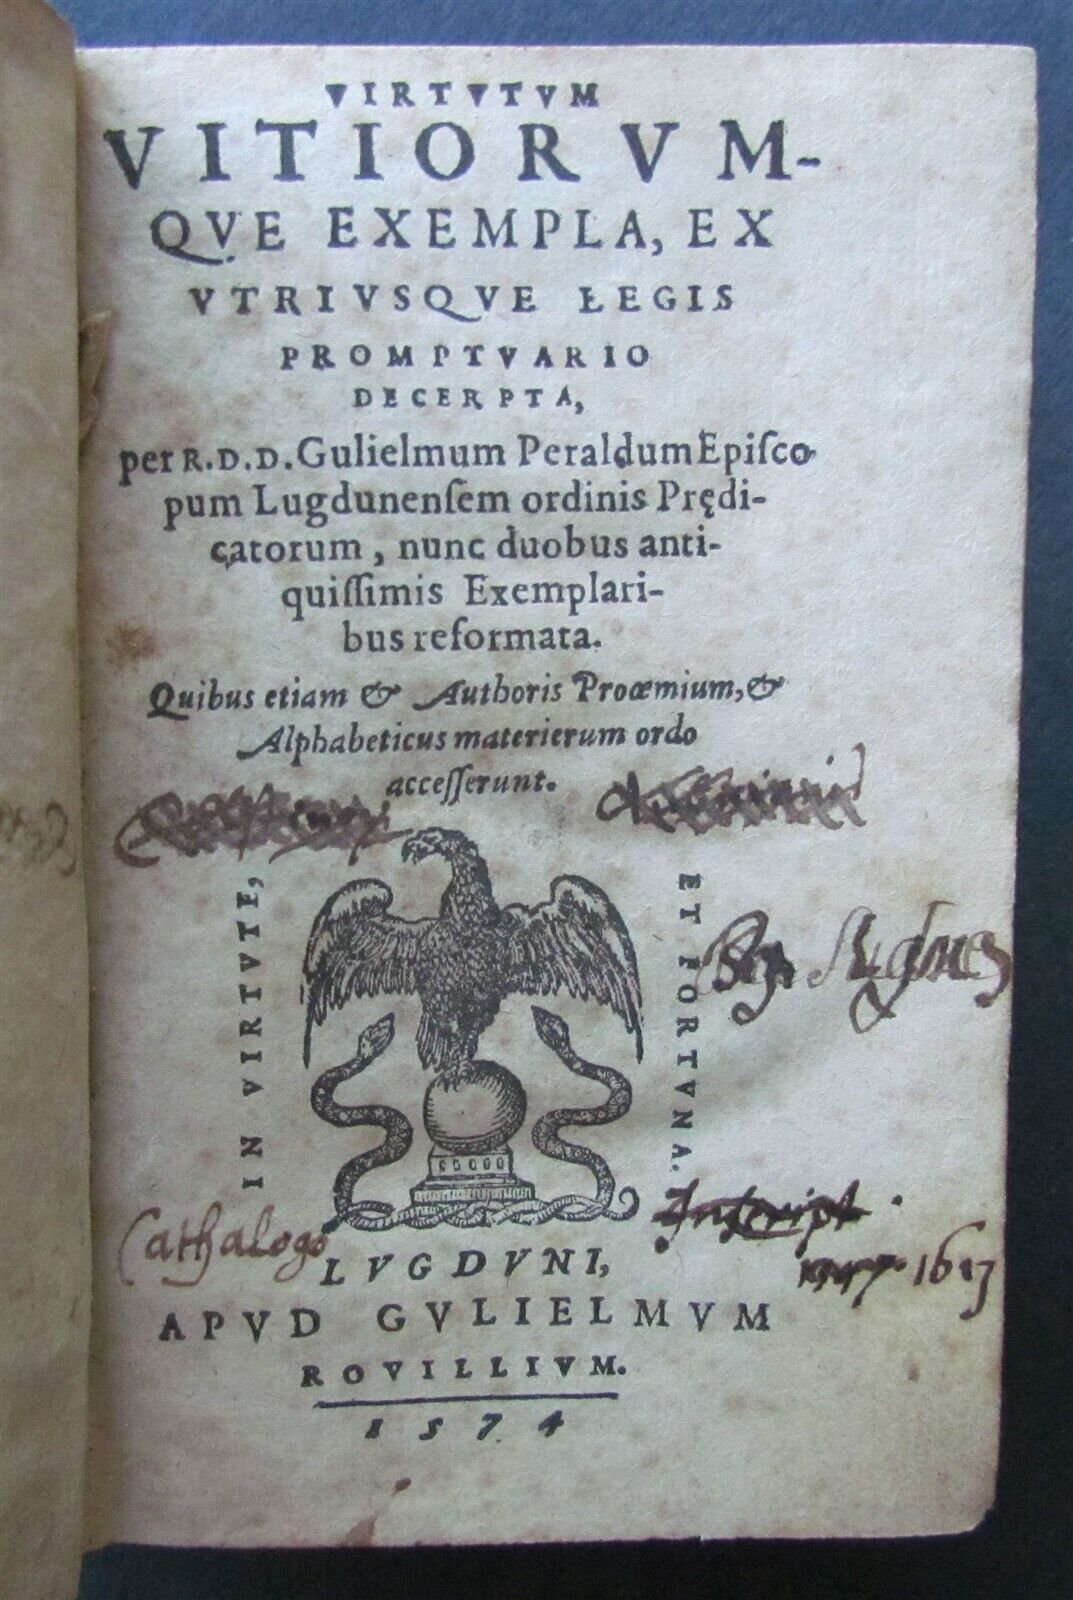 VIRTVTVM
VITIORVM-
QVE EXEMPLA, EX
VTRIVSQVE LEGIS
PROMPTVARIO
DECERPTA,
per R.D.D. Gulielmum Peraldum Epiſco-
pum Lugdunenſem ordinis Prędi-
catorum, nunc duobus anti-
quiſſimis Exemplari-
bus reformata.
Quibus etiam & Authoris Proœmium, &
Alphabeticus materierum ordo
acceſſerunt.
IN VIRTVTE,
ET FORTVNA.
Cathalogo
Inſcript
LVGDVNI,
APVD GVLIELMVM
ROVILLIVM.
1574